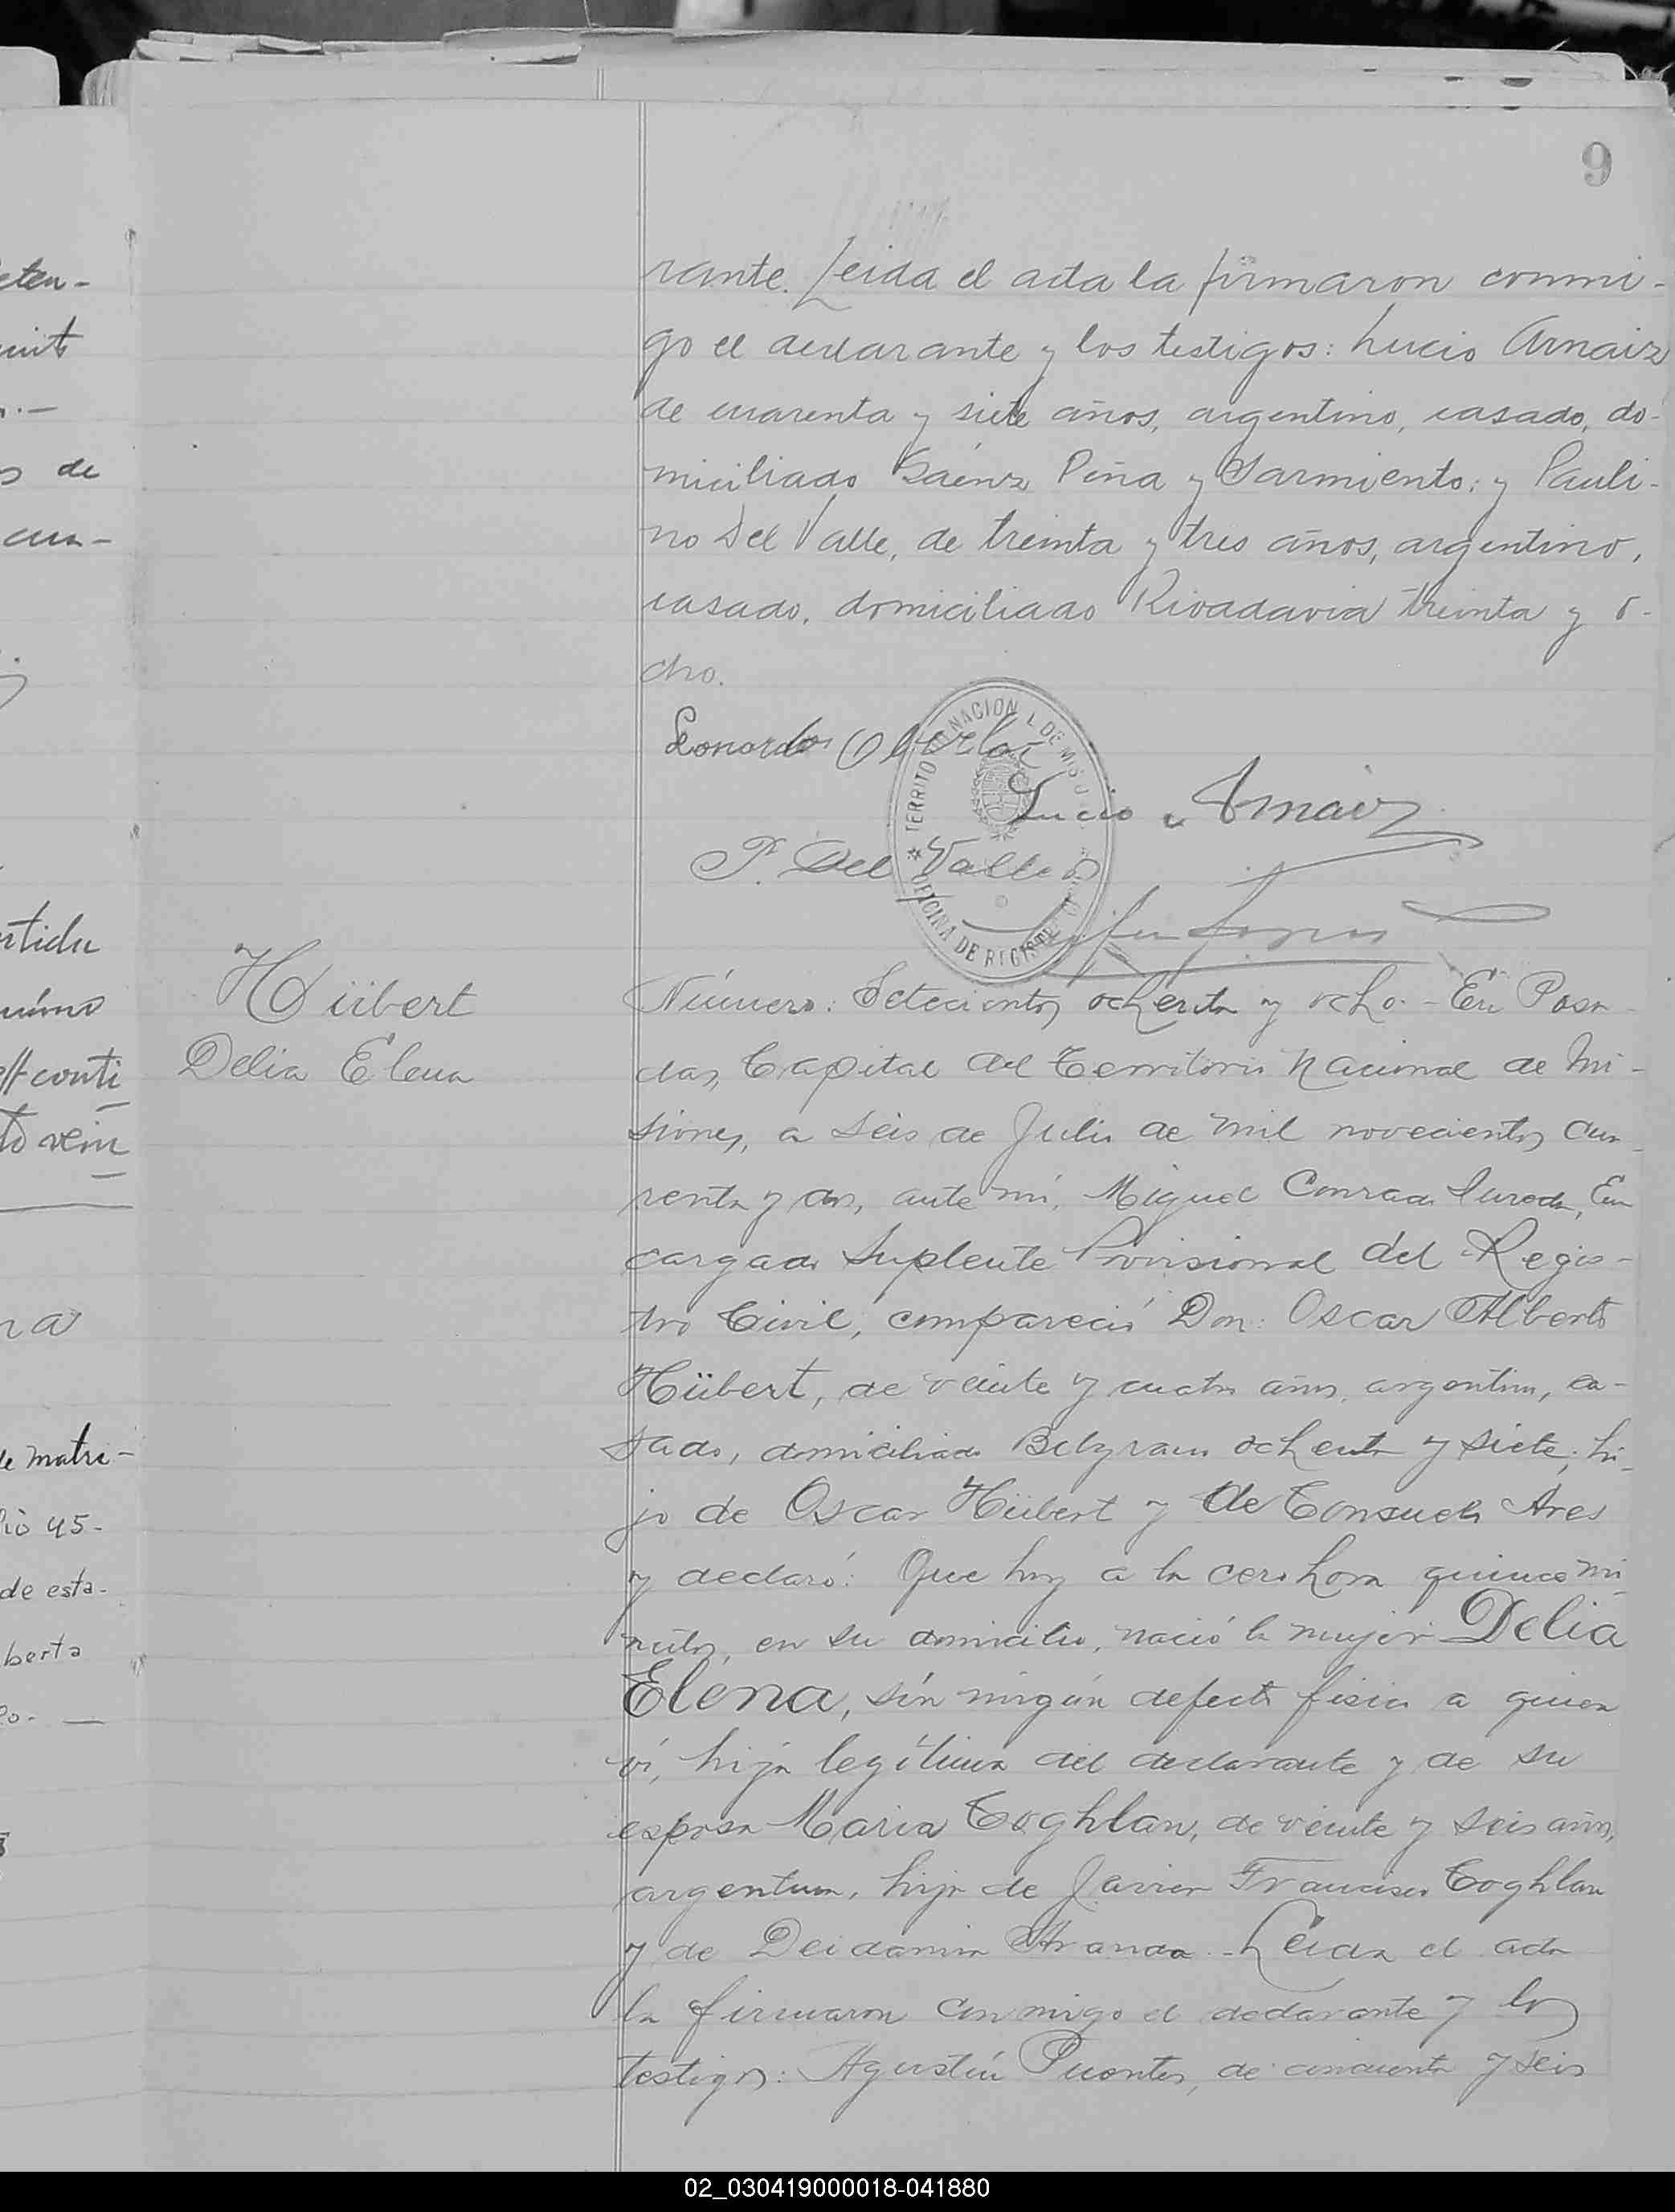 9
eten-
rante. Leida el acta la firmaron conmi-
go el declarante y los testigos: Lucio Arnaiz
de cuarenta y siete años, argentino, casado, do-
s de
miciliado Saénz Peña y Sarmiento; y Pauli-
no Del Valle, de treinta y tres años, argentino,
casado, domiciliado Rivadavia treinta y o-
cho.
Leonardo
TERRITORIO NACIONAL DE MISIONES
OFICINA DE REGISTRO CIVIL
Lucio Arnaiz
P. Del Valle
Hübert
Delia Elena
Número: Setecientos ochenta y ocho.- En Posa-
conti
das, Capital del Territorio Nacional de Mi-
vein
siones, a seis de Julio de mil novecientos cua-
renta y dos, ante mí, Miguel Conrado En
cargado Suplente Provisional del Regis-
na
tro Civil, compareció Don: Oscar Alberto
Hübert, de veinte y cuatro años, argentino, ca-
de matri-
sado, domiciliado Belgrano ochenta y siete, hi-
45-
jo de Oscar Hübert y de Consuelo Ares
de esta-
y declaró: Que hoy a la cero hora quince mi-
berta
nutos, en su domicilio, nació la mujer Delia
Elena, sin ningún defecto físico a quien
ví, hija legítima del declarante y de su
esposa Maria Coghlan, de veinte y seis años,
argentina, hija de Javier Francisco Coghlan
y de Deidamia Aranda.- Leida el acta
la firmaron conmigo el declarante y los
testigos: Agustín Puentes, de cincuenta y seis
02_030419000018-041880